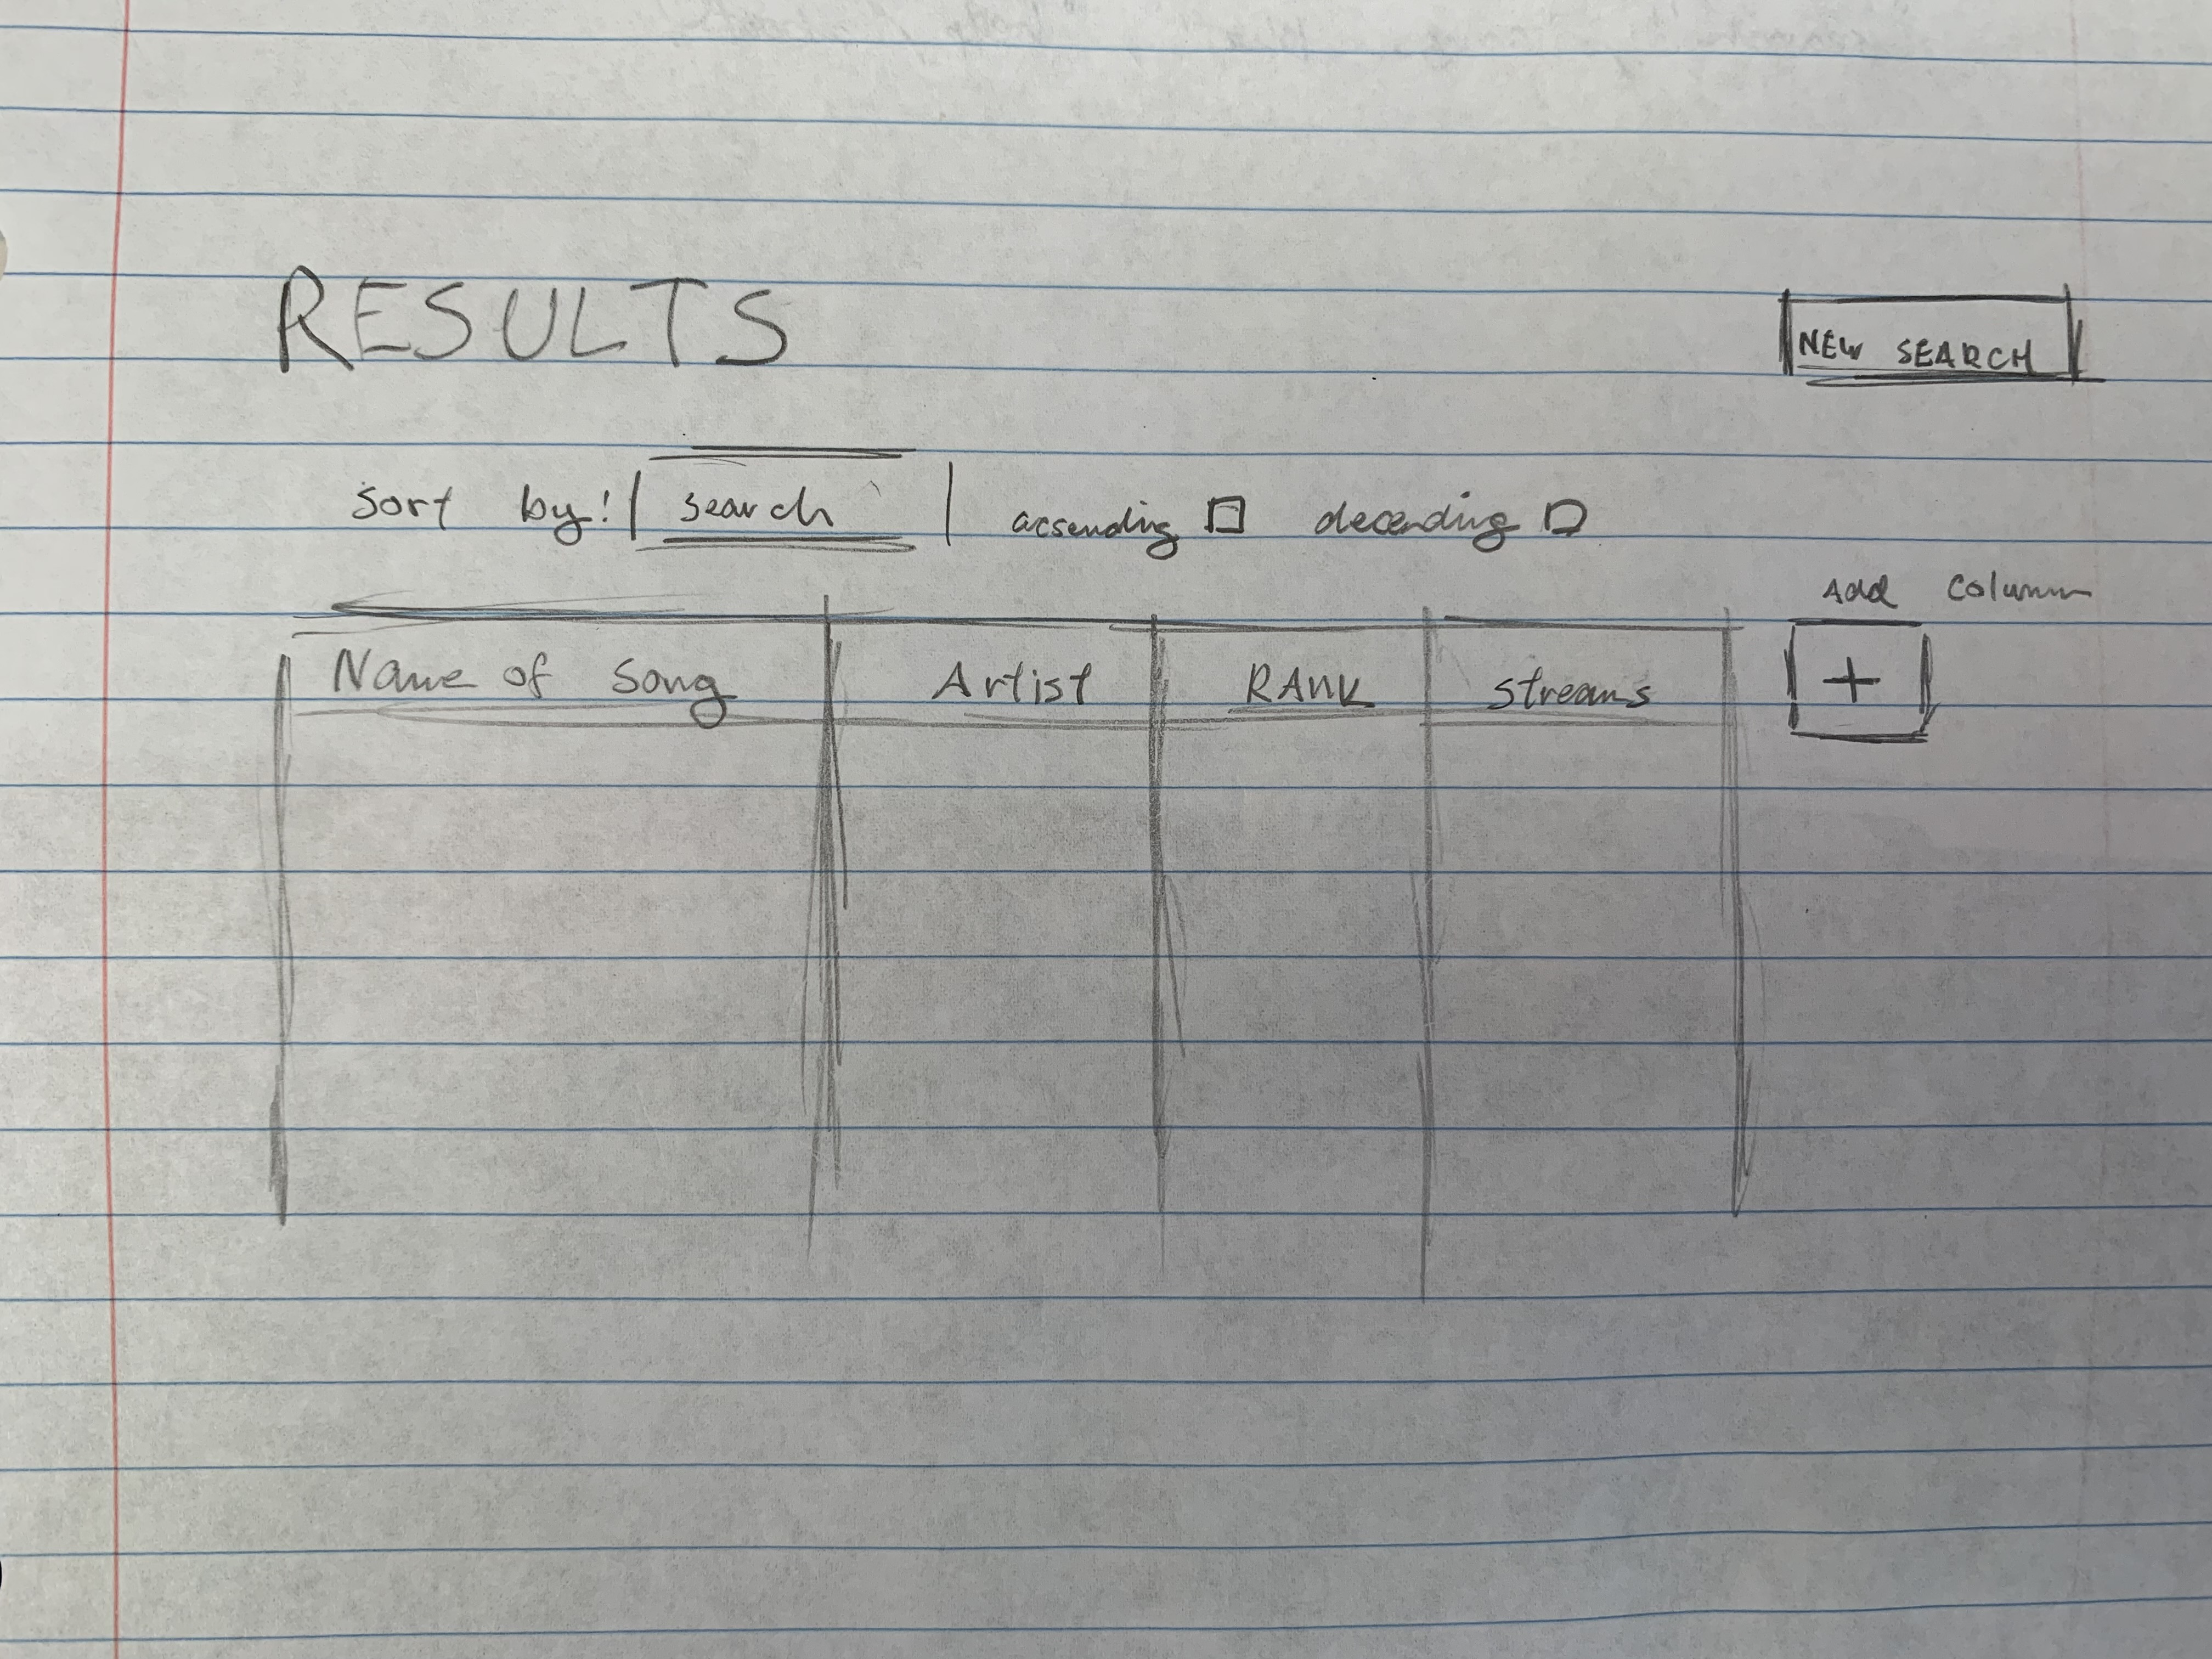 RESULTS
NEW SEARCH
Sort by: search acsending decending
Add Column
Name of Song Artist RANK Streams +